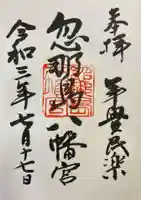 奉拝 年豊民楽
忽那島八幡宮
令和三年七月十七日